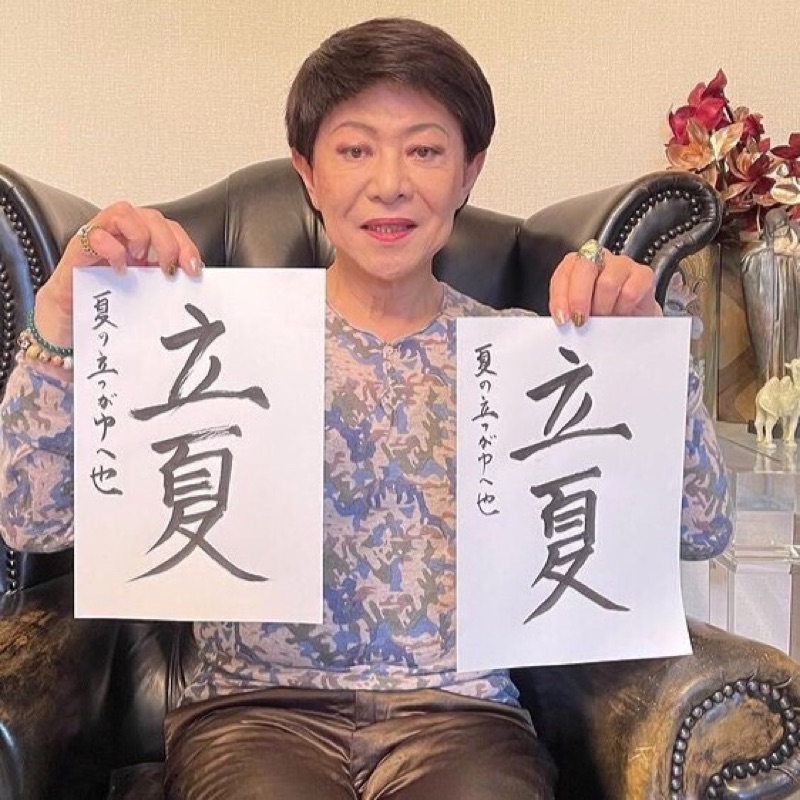 立夏
夏の立つがゆへ也
立夏
夏の立つがゆへ也